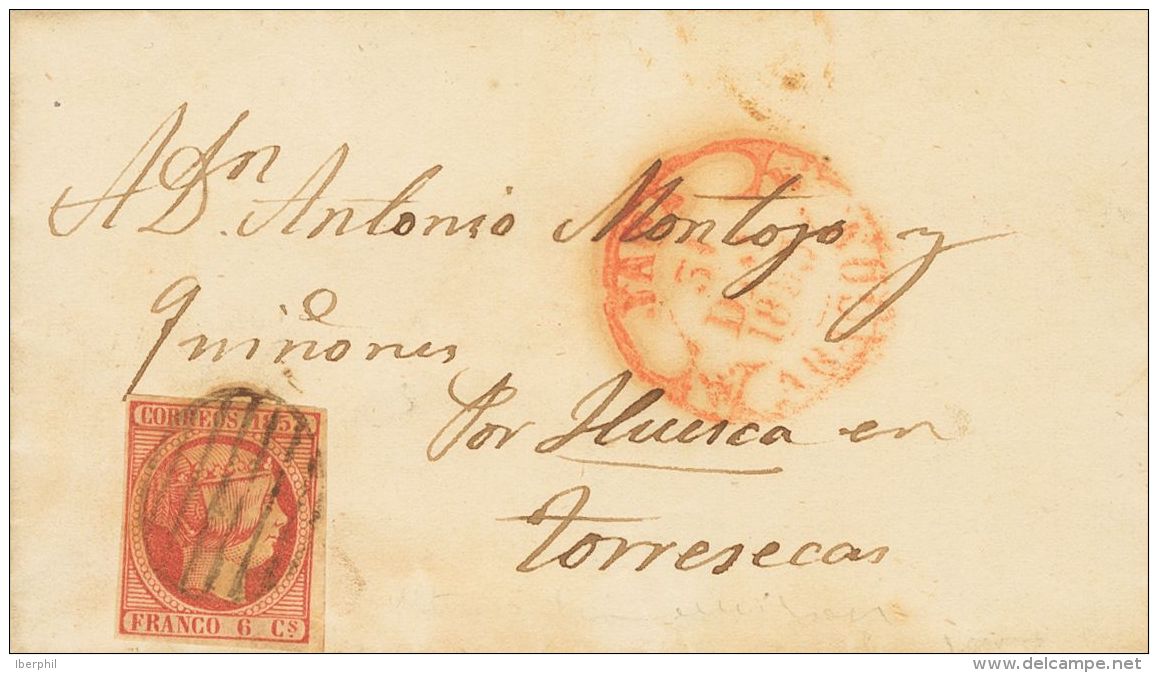 A Dn. Antonio Montojo y
Quiñones
Por Huesca en
Torresecas
CORREOS 1853
FRANCO 6 Cs
Iberphil
www.delcampe.net